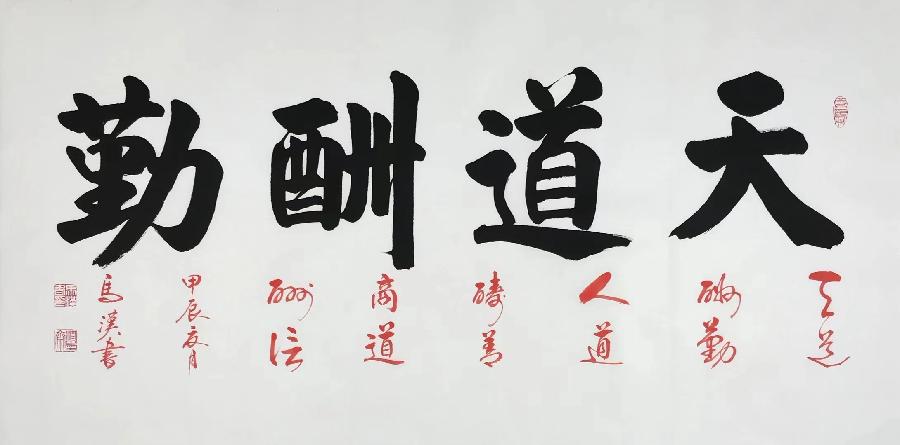 天道酬勤
天道
酬勤
人道
酬善
商道
酬信
甲辰夏月
馬漢書